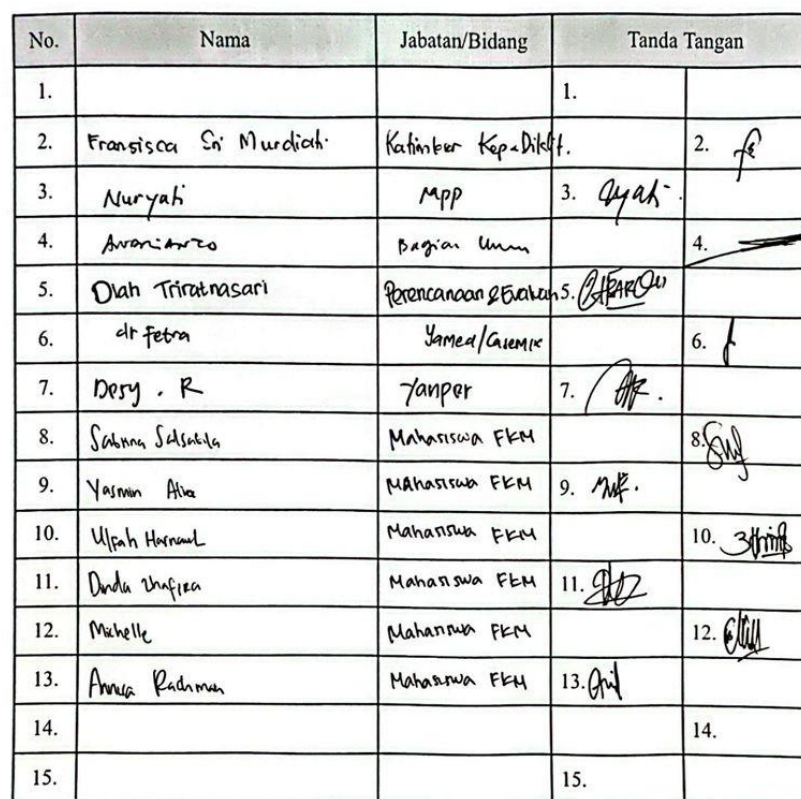 No. Nama Jabatan/Bidang Tanda Tangan
1. 1.
2. Fransisca Sri Murdiati Katimker Kep & Diklit. 2.
3. Nuryati MPP 3.
4. Bagian Umum 4.
5. Diah Triratnasari Perencanaan & Evaluasi 5.
6. dr Fetra Yamed/Casemix 6.
7. Desy . R Yanper 7.
8. Sabrina Salsabila Mahasiswa FKM 8.
9. Yasmin Mahasiswa FKM 9.
10. Ulfah Mahasiswa FKM 10.
11. Dinda Zhafira Mahasiswa FKM 11.
12. Michelle Mahasiswa FKM 12.
13. Annisa Rachman Mahasiswa FKM 13.
14. 14.
15. 15.